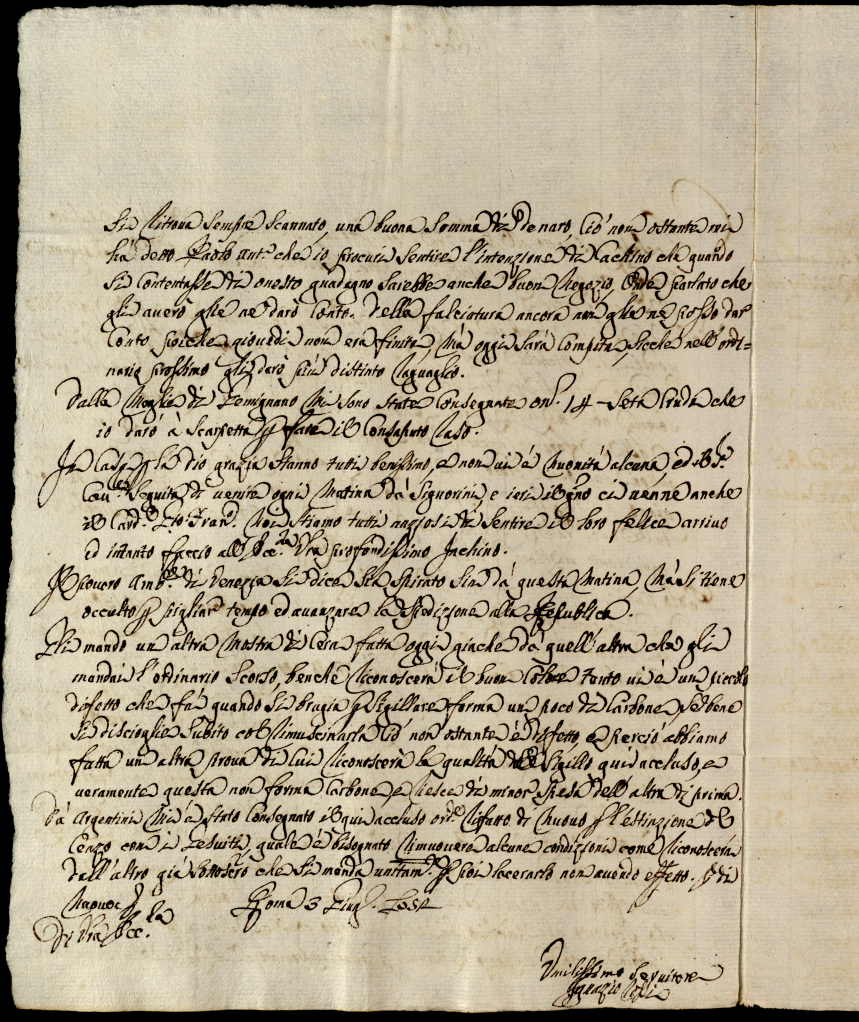 si ritrova sempre scannato, una buona somma di denaro, ciò non ostante mi
hà detto Paolo Ant.° che io procuri sentire l'intenzione di Cachino che quando
si contentasse di onesto guadagno sarebbe anche buon negozio, onde parlato che
gli averò glie ne darò conto. Della falciatura ancora non glie ne posso dar
conto poiche giovedì non era finita, mà oggi sarà compita, sicche nell'ordi=
nario prossimo gli darò più distinto raguaglio.
Dalla Moglie di Gemignano mi sono state consegnate on. 14 - seta cruda che
io darò à Scarpetta p fare il consaputo
In casa p la Dio grazia stanno tutti benissimo, e non vi è novità alcuna, ed
seguita di venire ogni matina dà Signorini, e ieri il gno ci venne anche
il Card. Noi stiamo tutti anziosi di sentire il loro felice arrivo
ed intanto faccio all' Ecc. Vra profondissimo inchino.
Il povero Amb. di Venezia si dice sia spirato sin dà questa matina, mà si tiene
occulto p pigliar tempo ed avanzare la spedizione alla Republica.
Gli mando un altra mostra di cera fatta oggi giache dà quell'altra che gli
mandai l'ordinario scorso, benche riconoscerà il buon tanto vi è un piccolo
difetto che fà quando si brugia p sigillare forma un poco di carbone, sebene
si discioglie subito col rimuscinarla ciò non ostante è difetto e perciò abbiamo
fatta un altra prova di cui riconoscerà la qualità del sigillo qui accluso, e
veramente questa non forma carbone, e riesce di minor spesa dell'altra di prima.
Dà Argentini mi è stato consegnato il qui accluso ord. rifatto di nuovo p l'estinzione del
Cenzo con i Gesuiti, quale è bisognato rimuovere alcune condizioni come riconoscerà
dall'altro già che si manda unitam. p poi lacerarlo non avendo effetto. E di
nuovo
Roma 3 Giug.
Di Vra Ecc.
Umilissimo Servitore
Ignazio